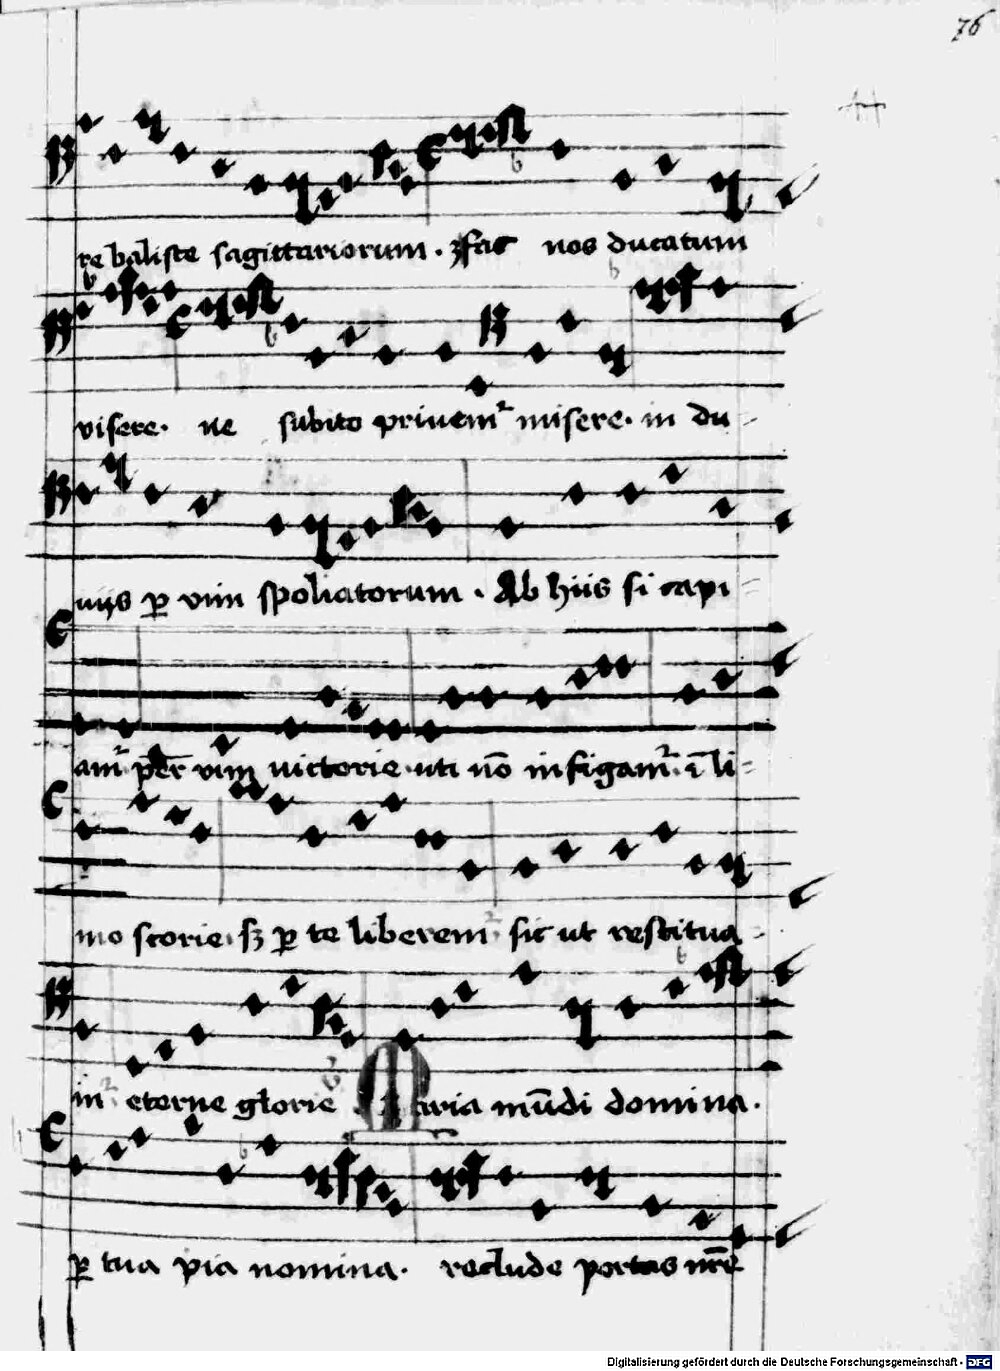 76
re baliste sagittariorum. fac nos ducatum
visere. ne subito priuem² misere. in du-
uijs p vim spoliatorum. Ab hiis si capi-
am² vim victorie. uti nō infigam². ī li-
mo scorie. sʒ p te liberem² sic ut restitua-
m² eterne glorie Maria mūdi domina.
p tua pia nomina. reclude portas nr̄e
Digitalisierung gefördert durch die Deutsche Forschungsgemeinschaft - DFG